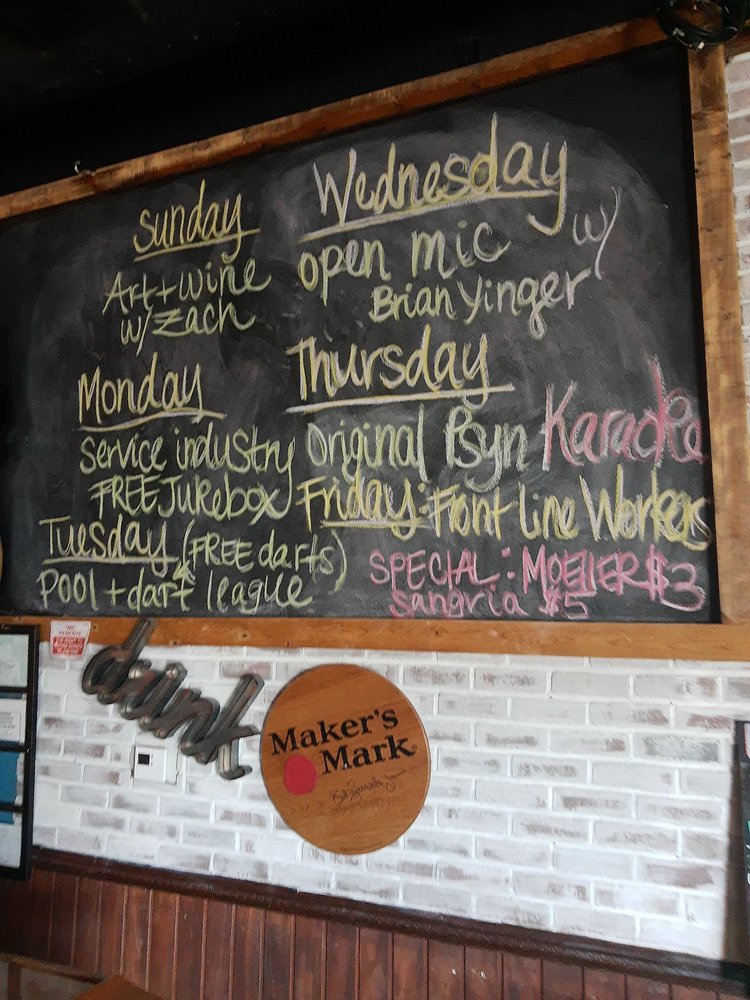 Sunday
Art + wine
w/ Zach
Monday
Service industry
FREE Jukebox
Tuesday (FREE darts)
Pool + dart league
Wednesday
open mic w/
Brian Yinger
Thursday
Original Psyn Karaoke
Friday: Front line Workers
SPECIAL: MOELLER $3
Sangria $5
drink
Maker's
Mark